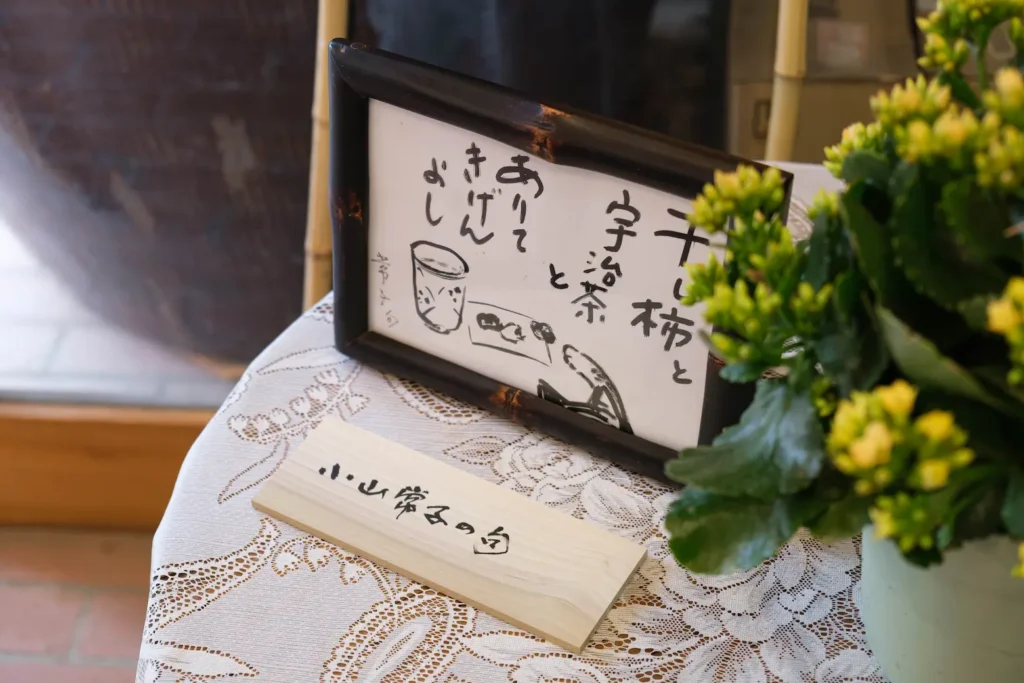 干し柿と
宇治茶
と
ありて
きげん
よし
小山常子の句